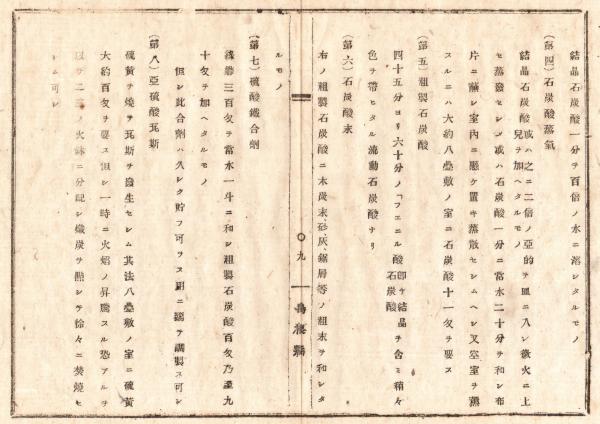 結晶石炭酸一分ヲ百倍ノ水ニ溶シタルモノ
(第四)石炭酸蒸氣
結晶石炭酸 或ハ之ニ二倍ノ亞的兒ヲ加ヘタルモノ ヲ皿ニ入レ微火ニ上
セ蒸發セシメ或ハ石炭酸一分ニ常水二十分ヲ和シ布
片ニ蘸シ室内ニ懸ケ置キ蒸散セシムヘシ又空室ヲ薰
スルニハ大約八疊敷ノ室ニ石炭酸十一匁ヲ要ス
(第五)粗製石炭酸
四十五分ヨリ六十分ノ「フエニル酸 即ケ結晶石炭酸 ヲ含ミ稍々
色ヲ帶ヒタル流動石炭酸ナリ
(第六)石炭酸末
右ノ粗製石炭酸ニ木炭末、砂、灰、鋸屑等ノ粗末ヲ和シタ
〇九
島根縣
ルモノ
(第七)硫酸鐵合劑
綠礬三百匁ヲ常水一斗ニ和シ粗製石炭酸百匁乃至九
十匁ヲ加ヘタルモノ
但シ此合劑ハ久シク貯フ可ラス用ニ臨テ調製ス可シ
(第八)亞硫酸瓦斯
硫黃ヲ燒テ瓦斯ヲ發生セシム其法八疊敷ノ室ニ硫黃
大約百匁ヲ要ス但シ一時ニ火焰ノ昇騰スル恐アルヲ
以テ二三ノ火鉢ニ分配シ熾炭ヲ點シテ徐々ニ焚燒セ
シム可シ